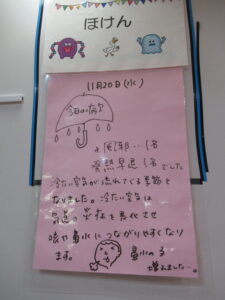 ほけん
11月20日(水)
今日の病欠
風邪…1名
発熱早退 1名でした
冷たい空気が流れてくる季節と
なりました。冷たい空気は
気道の炎症を悪化させ
咳や鼻水につながりやすくなり
ます。
鼻水の子
増えました…。